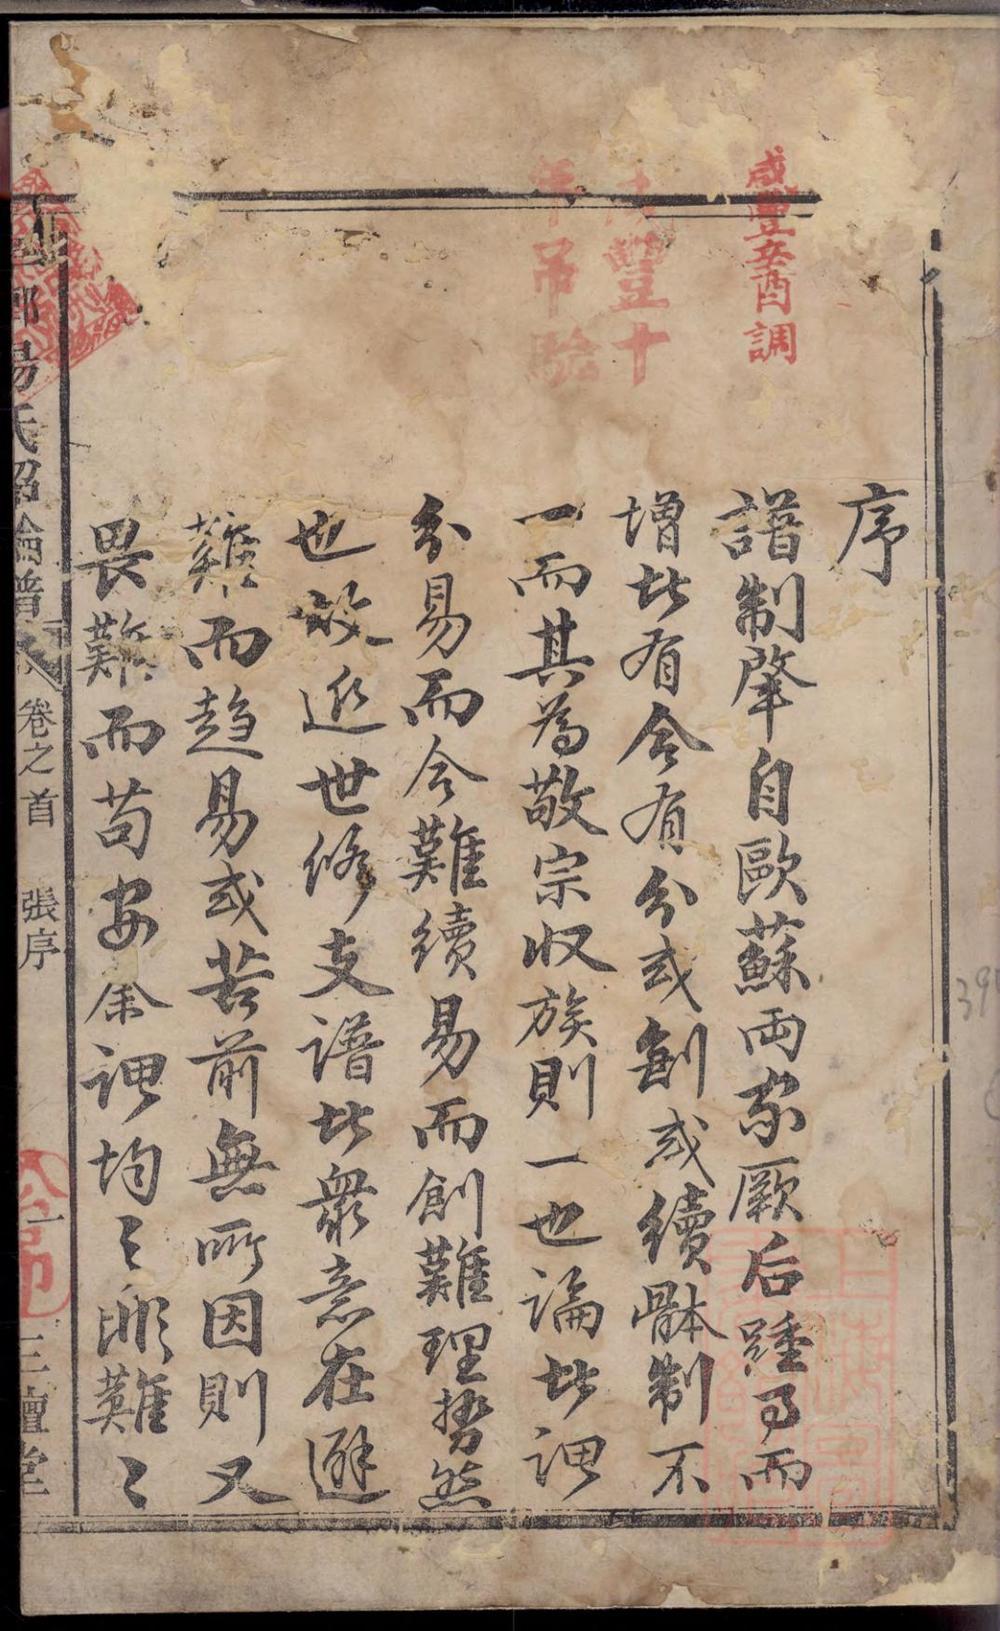 咸豐辛酉調
豐十
弔
序
譜制肇自歐蘇兩家厥后踵事而
增者有合有分或創或續體制不
一而其為敬宗收族則一也論者謂
分易而合難續易而創難理勢然
也故近世修支譜者眾意在避
難而趨易或苦前無所因則又
畏難而苟安余謂均之非難之
楊氏紹倫譜 卷之首 張序 一 三壇堂